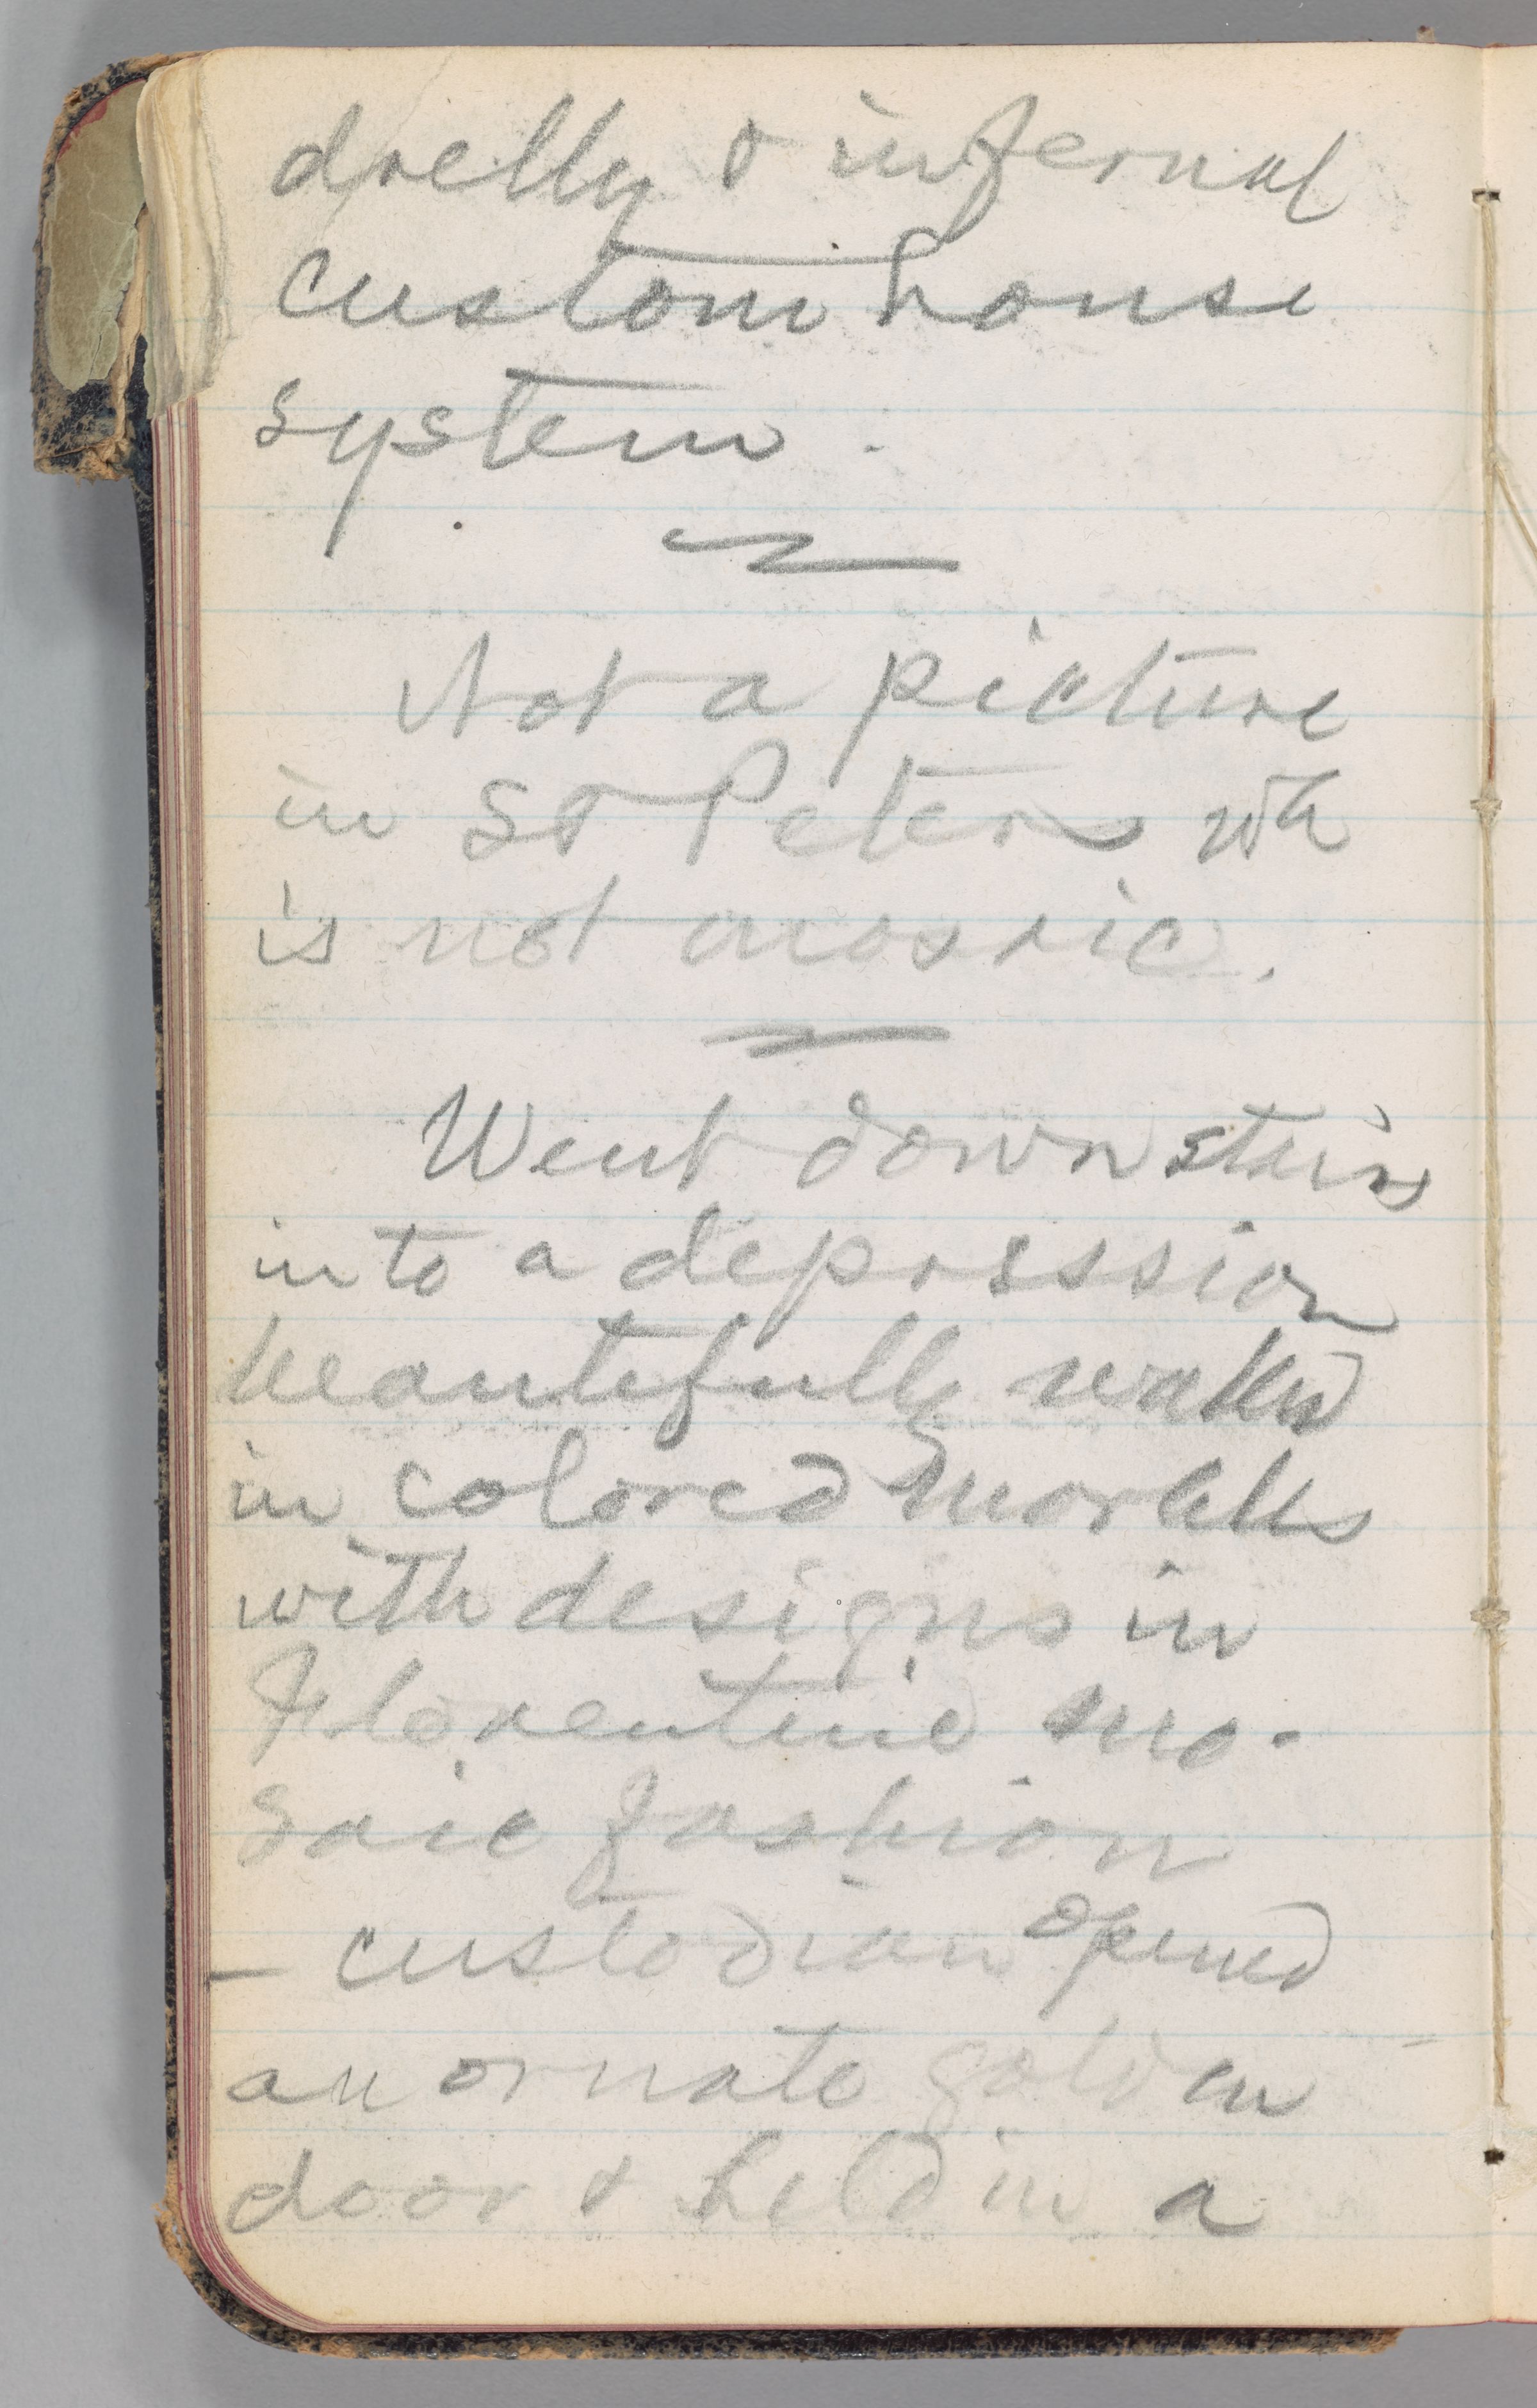 drelly & infernal
custom house
system.
Not a picture
in St Peters wh
is not mosaic.
Went down stairs
into a depression
beautifully walled
in colored marbles
with designs in
Florentine mo-
saic fashion
— custodian opened
an ornate golden
door & held in a